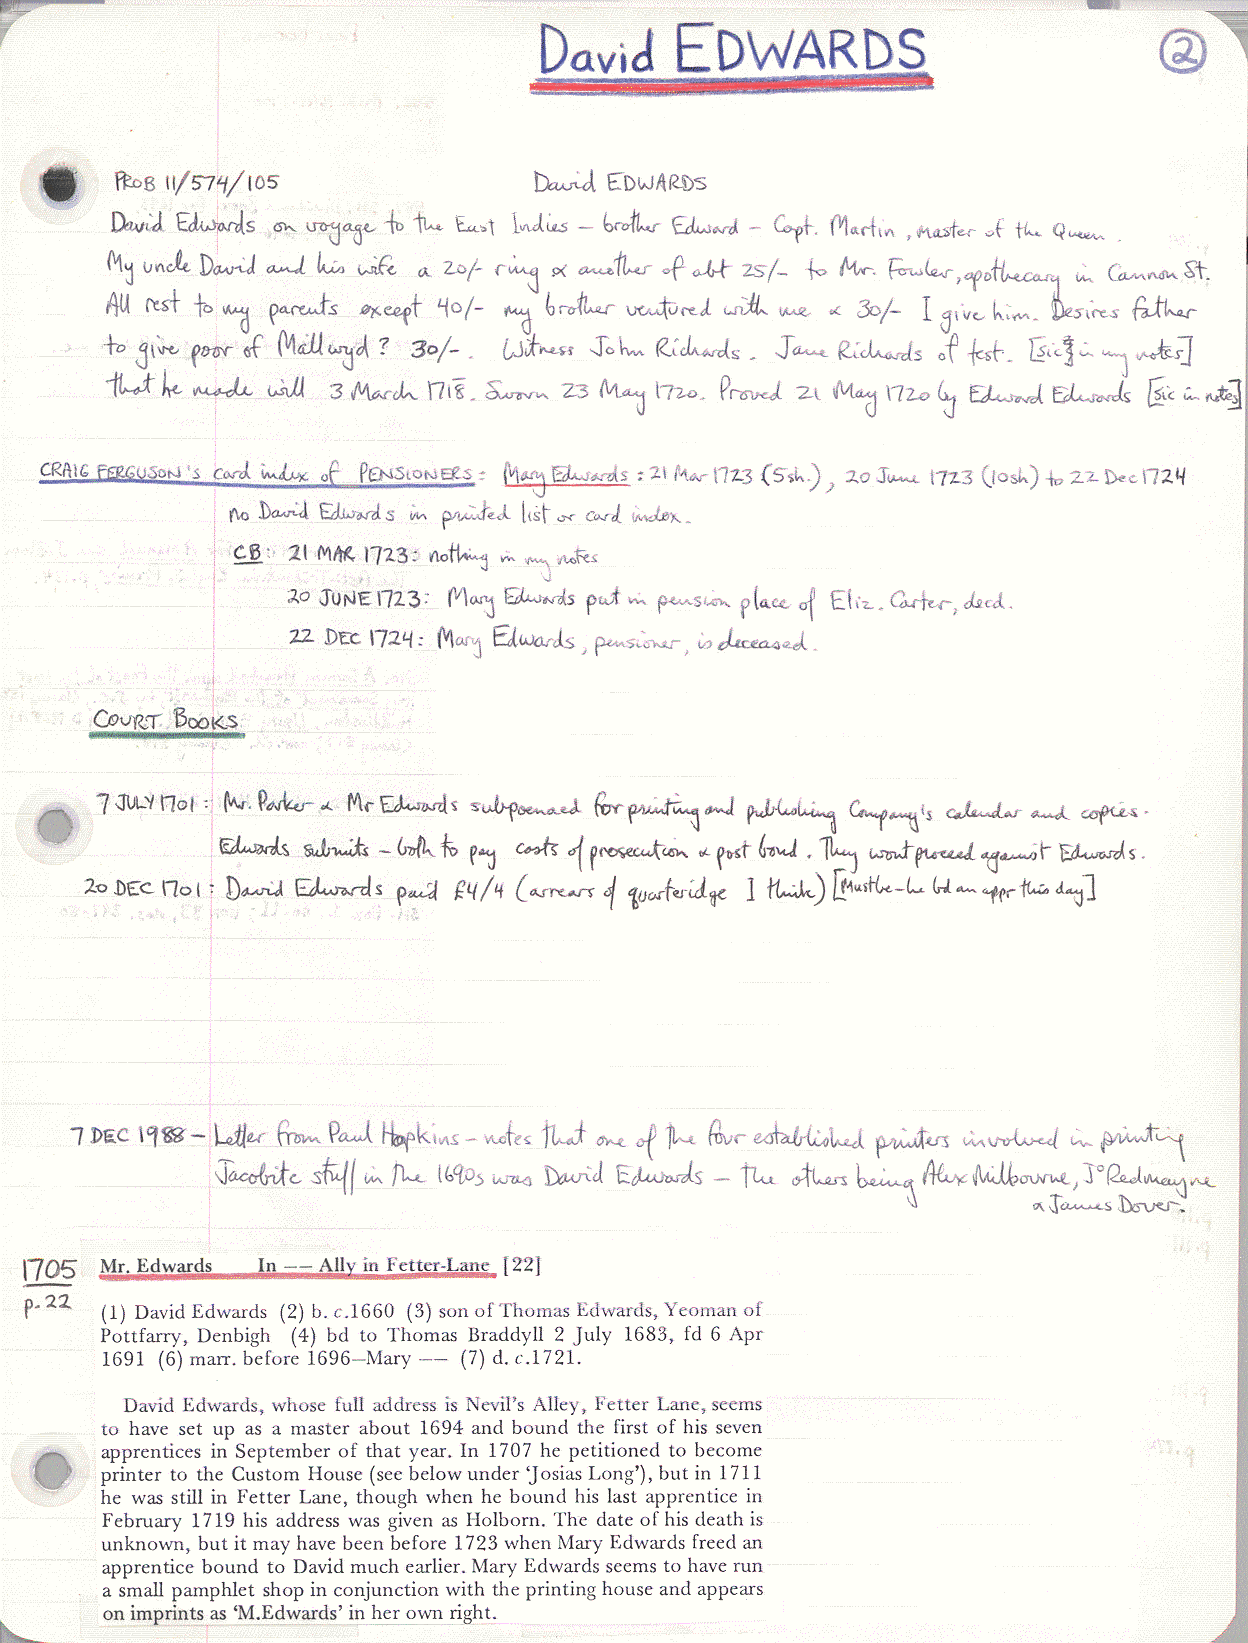 David EDWARDS
2
PROB 11/574/105 David EDWARDS
David Edwards on voyage to the East Indies – brother Edward – Capt. Martin, master of the Queen.
My uncle David and his wife a 20/- ring & another of abt 25/- to Mr. Fowler, apothecary in Cannon St.
All rest to my parents except 40/- my brother ventured with me & 30/- I give him. Desires father
to give poor of Mallwyd? 30/-. Witness John Richards. Jane Richards of test. [sic in my notes]
that he made will 3 March 1718. Sworn 23 May 1720. Proved 21 May 1720 by Edward Edwards [sic in notes]
CRAIG FERGUSON's card index of PENSIONERS: Mary Edwards: 21 Mar 1723 (5sh.), 20 June 1723 (10sh) to 22 Dec 1724
no David Edwards in printed list or card index.
CB: 21 MAR 1723: nothing in my notes
20 JUNE 1723: Mary Edwards put in pension place of Eliz. Carter, decd.
22 DEC 1724: Mary Edwards, pensioner, is deceased.
COURT BOOKS
7 JULY 1701: Mr. Parker & Mr Edwards subpoenaed for printing and publishing Company's calendar and copies.
Edwards submits – both to pay costs of prosecution & post bond. They wont proceed against Edwards.
20 DEC 1701: David Edwards paid £4/4 (arrears of quarteridge I think) [Must be – he bd an appr this day]
7 DEC 1988 – Letter from Paul Hopkins – notes that one of the four established printers involved in printing
Jacobite stuff in the 1690s was David Edwards – the others being Alex Milbourne, Jo Redmayne
& James Dover.
1705
p. 22
Mr. Edwards In –– Ally in Fetter-Lane [22]
(1) David Edwards (2) b. c.1660 (3) son of Thomas Edwards, Yeoman of
Pottfarry, Denbigh (4) bd to Thomas Braddyll 2 July 1683, fd 6 Apr
1691 (6) marr. before 1696–Mary –– (7) d. c.1721.
David Edwards, whose full address is Nevil's Alley, Fetter Lane, seems
to have set up as a master about 1694 and bound the first of his seven
apprentices in September of that year. In 1707 he petitioned to become
printer to the Custom House (see below under 'Josias Long'), but in 1711
he was still in Fetter Lane, though when he bound his last apprentice in
February 1719 his address was given as Holborn. The date of his death is
unknown, but it may have been before 1723 when Mary Edwards freed an
apprentice bound to David much earlier. Mary Edwards seems to have run
a small pamphlet shop in conjunction with the printing house and appears
on imprints as 'M.Edwards' in her own right.